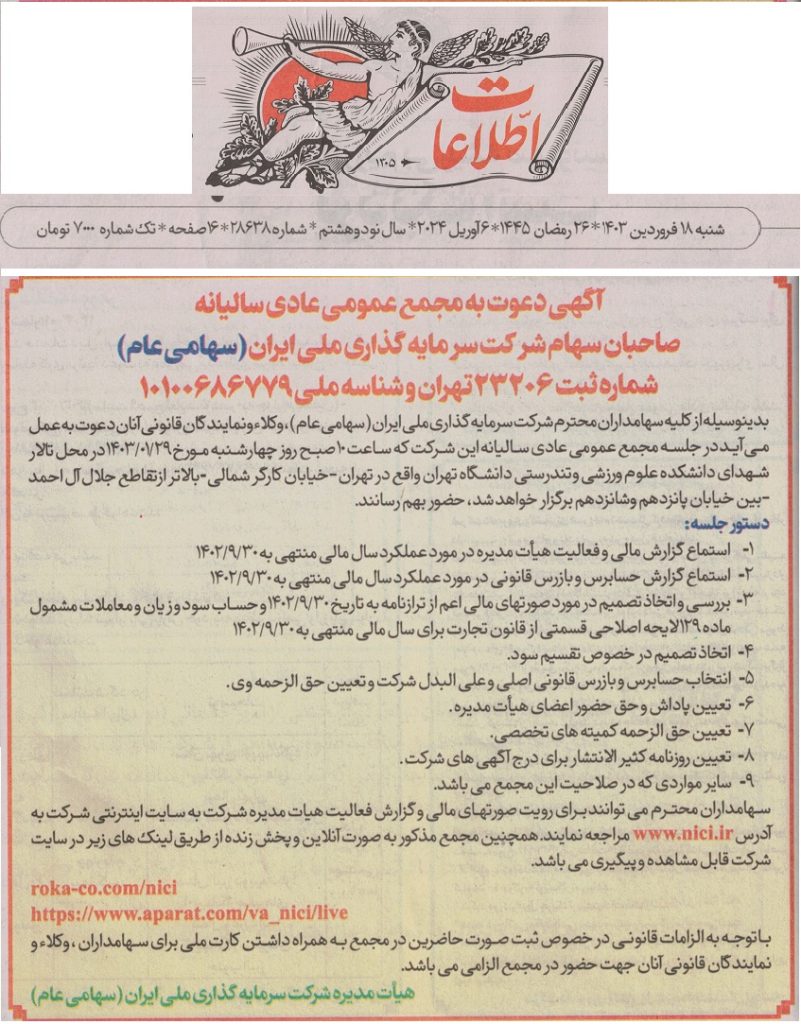 اطلاعات
۱۳۰۵
شنبه ۱۸ فروردین ۱۴۰۳ * ۲۶ رمضان ۱۴۴۵ * ۶ آوریل ۲۰۲۴ * سال نود و هشتم * شماره ۲۸۶۳۸ * ۱۶ صفحه * تک شماره ۷۰۰۰ تومان
آگهی دعوت به مجمع عمومی عادی سالیانه
صاحبان سهام شرکت سرمایه گذاری ملی ایران (سهامی عام)
شماره ثبت ۲۳۲۰۶ تهران و شناسه ملی ۱۰۱۰۰۶۸۶۷۷۹
بدینوسیله از کلیه سهامداران محترم شرکت سرمایه گذاری ملی ایران (سهامی عام)، وکلاء و نمایندگان قانونی آنان دعوت به عمل
می آید در جلسه مجمع عمومی عادی سالیانه این شرکت که ساعت ۱۰ صبح روز چهارشنبه مورخ ۱۴۰۳/۰۱/۲۹ در محل تالار
شهدای دانشکده علوم ورزشی و تندرستی دانشگاه تهران واقع در تهران - خیابان کارگر شمالی - بالاتر از تقاطع جلال آل احمد
- بین خیابان پانزدهم و شانزدهم برگزار خواهد شد، حضور بهم رسانند.
دستور جلسه:
۱- استماع گزارش مالی و فعالیت هیأت مدیره در مورد عملکرد سال مالی منتهی به ۱۴۰۲/۹/۳۰
۲- استماع گزارش حسابرس و بازرس قانونی در مورد عملکرد سال مالی منتهی به ۱۴۰۲/۹/۳۰
۳- بررسی و اتخاذ تصمیم در مورد صورتهای مالی اعم از ترازنامه به تاریخ ۱۴۰۲/۹/۳۰ و حساب سود و زیان و معاملات مشمول
ماده ۱۲۹ لایحه اصلاحی قسمتی از قانون تجارت برای سال مالی منتهی به ۱۴۰۲/۹/۳۰
۴- اتخاذ تصمیم در خصوص تقسیم سود.
۵- انتخاب حسابرس و بازرس قانونی اصلی و علی البدل شرکت و تعیین حق الزحمه وی.
۶- تعیین پاداش و حق حضور اعضای هیأت مدیره.
۷- تعیین حق الزحمه کمیته های تخصصی.
۸- تعیین روزنامه کثیر الانتشار برای درج آگهی های شرکت.
۹- سایر مواردی که در صلاحیت این مجمع می باشد.
سهامداران محترم می توانند برای رویت صورتهای مالی و گزارش فعالیت هیات مدیره شرکت به سایت اینترنتی شرکت به
آدرس www.nici.ir مراجعه نمایند. همچنین مجمع مذکور به صورت آنلاین و پخش زنده از طریق لینک های زیر در سایت
شرکت قابل مشاهده و پیگیری می باشد.
roka-co.com/nici
https://www.aparat.com/va_nici/live
با توجه به الزامات قانونی در خصوص ثبت صورت حاضرین در مجمع به همراه داشتن کارت ملی برای سهامداران، وکلاء و
نمایندگان قانونی آنان جهت حضور در مجمع الزامی می باشد.
هیأت مدیره شرکت سرمایه گذاری ملی ایران (سهامی عام)